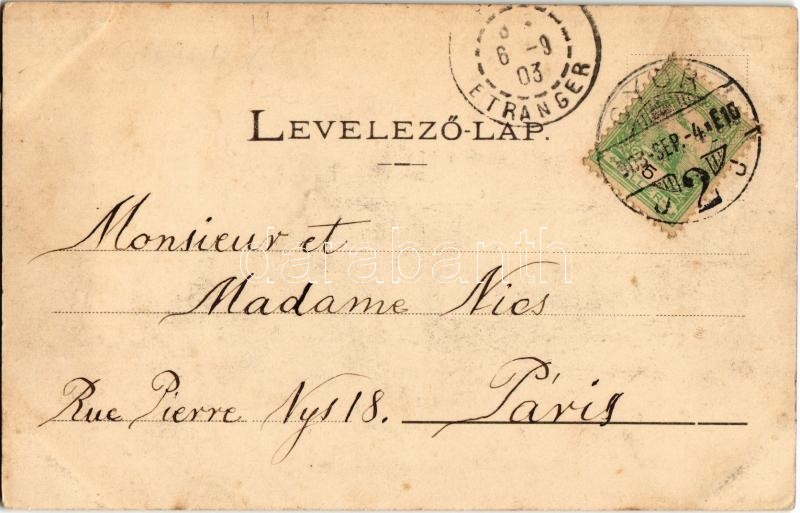 6 -9
03
ETRANGER
GYŐR
SEP.-4.
2
LEVELEZŐ-LAP.
Monsieur et
darabanth
Madame Nies
Rue Pierre Nys 18. Páris